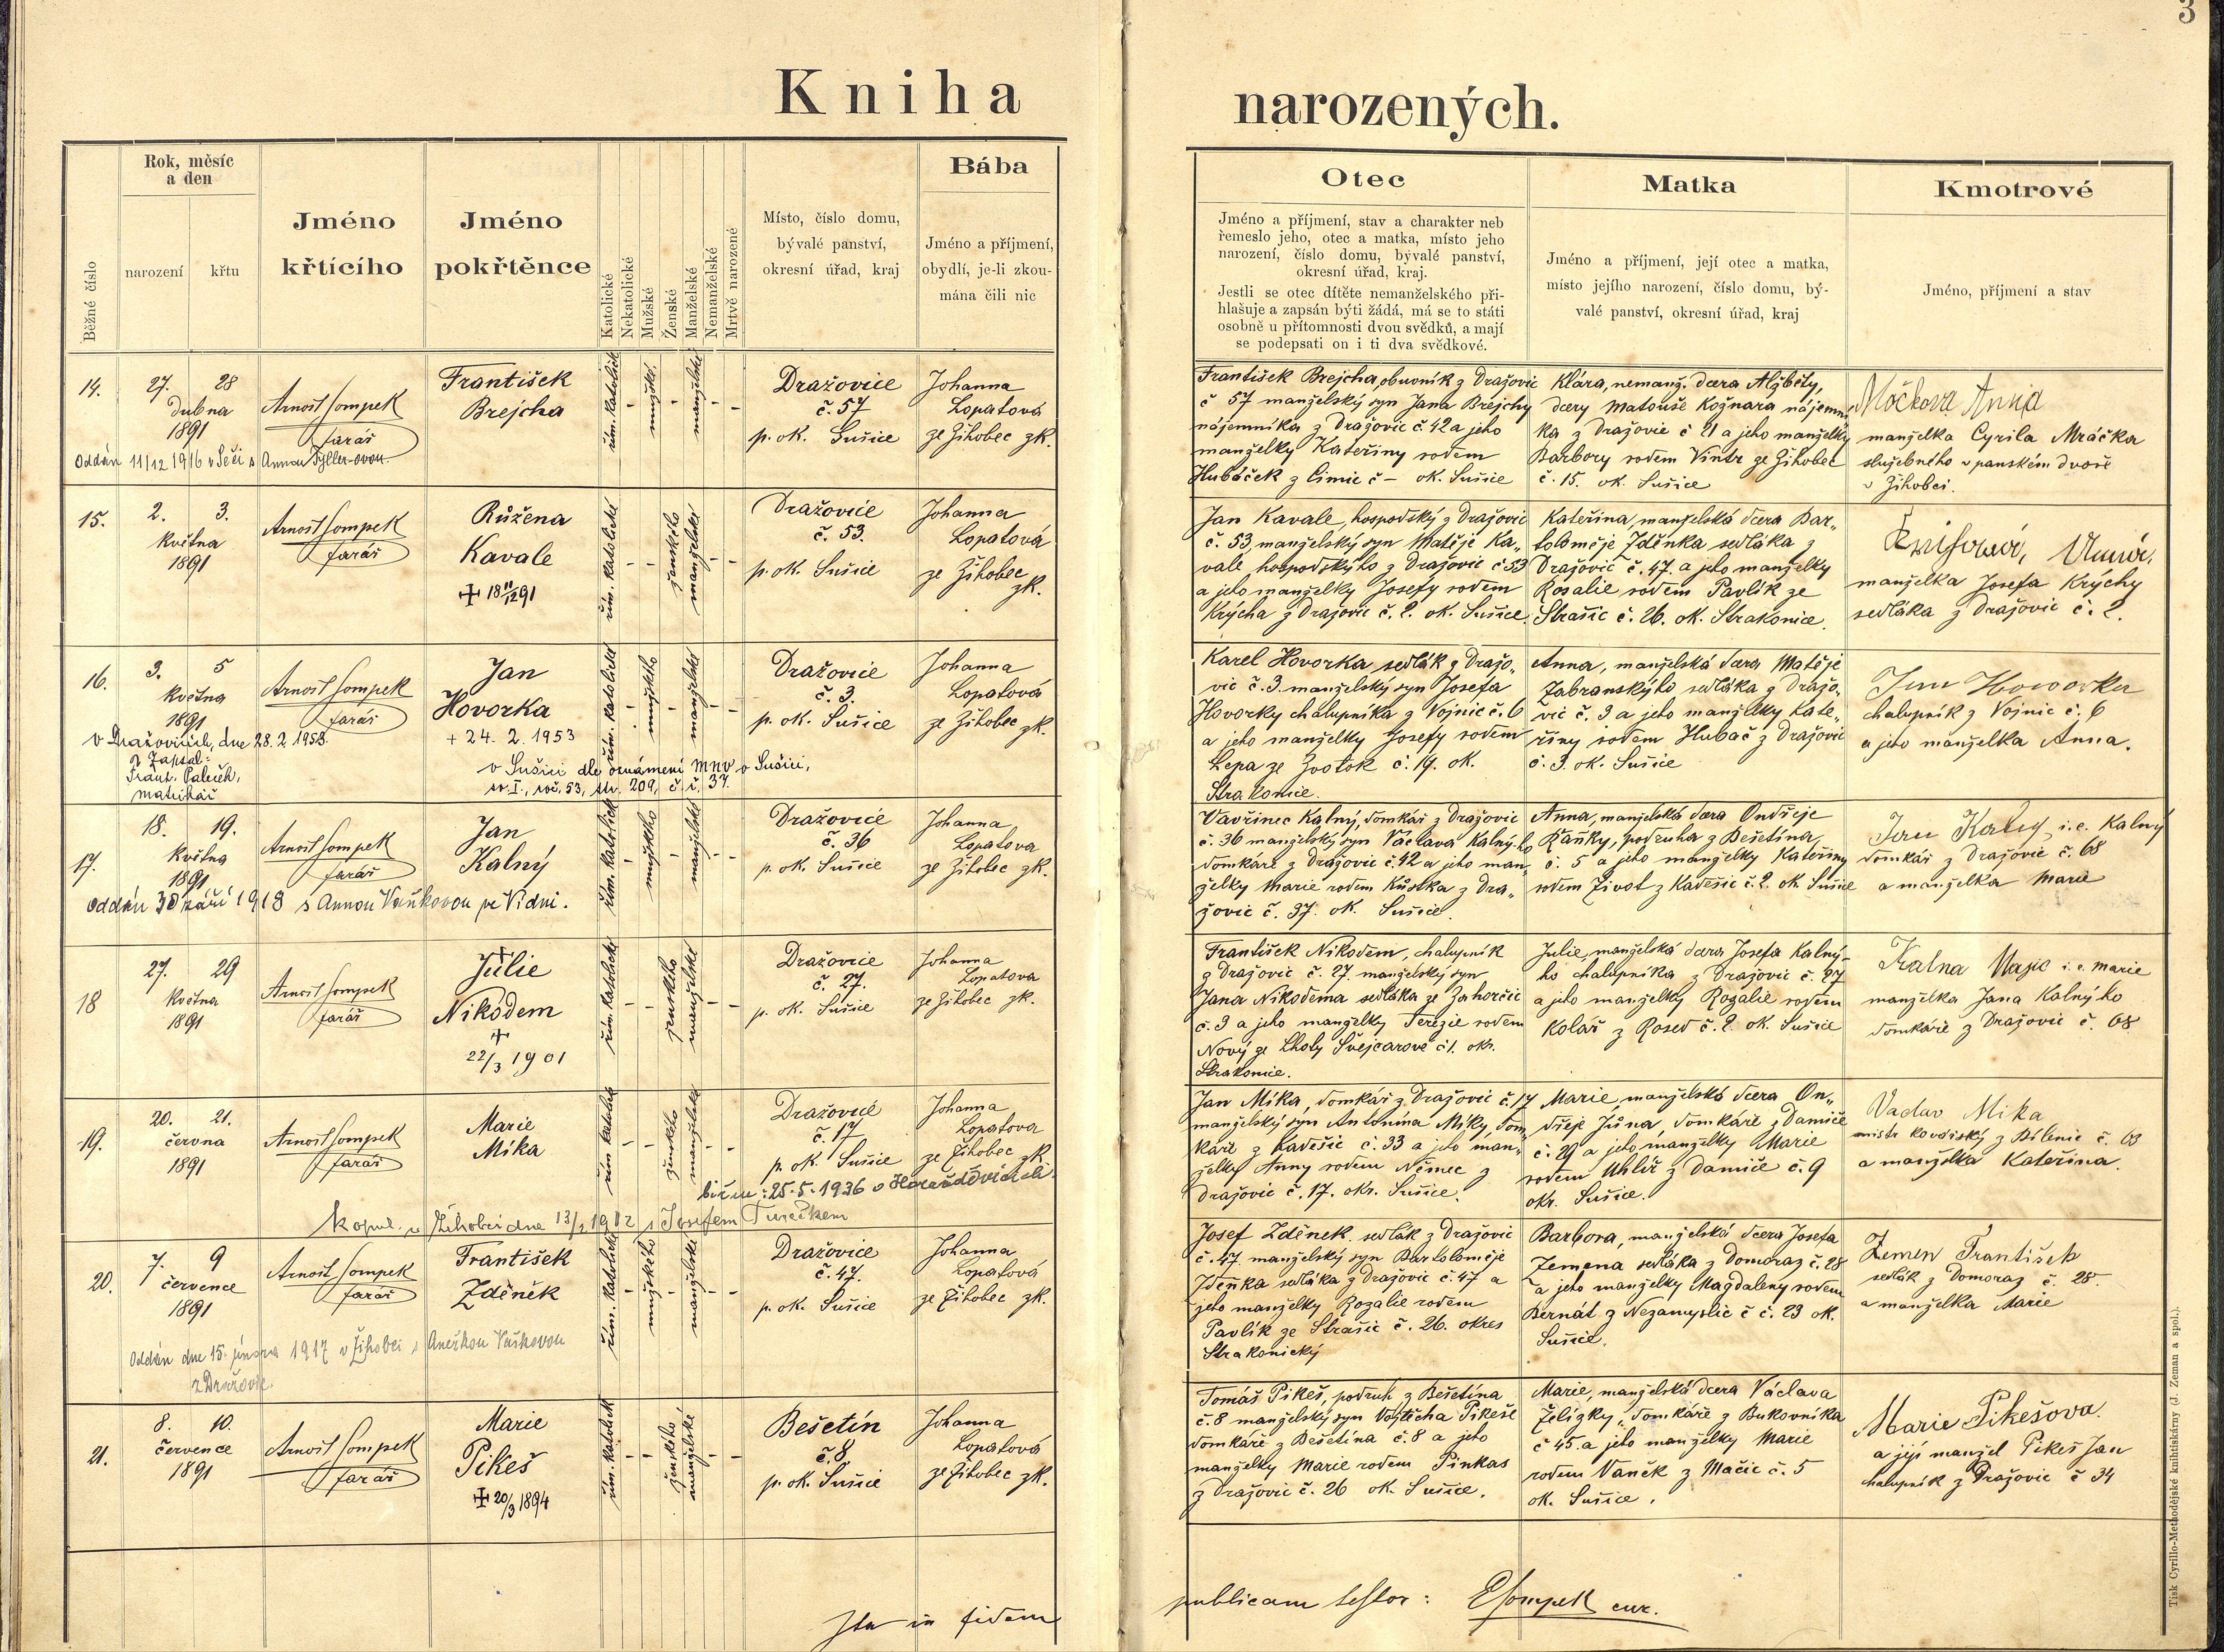 3
Kniha narozených.
Běžné číslo
Rok, měsíc
a den
narození
křtu
Jméno
křtícího
Jméno
pokřtěnce
Katolické
Nekatolické
Mužské
Ženské
Manželské
Nemanželské
Mrtvě narozené
Místo, číslo domu,
bývalé panství,
okresní úřad, kraj
Bába
Jméno a příjmení,
obydlí, je-li zkou-
mána čili nic
Otec
Jméno a příjmení, stav a charakter neb
řemeslo jeho, otec a matka, místo jeho
narození, číslo domu, bývalé panství,
okresní úřad, kraj.
Jestli se otec dítěte nemanželského při-
hlašuje a zapsán býti žádá, má se to státi
osobně u přítomnosti dvou svědků, a mají
se podepsati on i ti dva svědkové.
Matka
Jméno a příjmení, její otec a matka,
místo jejího narození, číslo domu, bý-
valé panství, okresní úřad, kraj
Kmotrové
Jméno, příjmení a stav
14.
27. 28
Dubna
1891
Arnošt Sompek
farář
František
Brejcha
řím. katolick
mužské
manželské
Dražovice
č. 57
p. ok. Sušice
Johanna
Lopatová
ze Žihobec zk.
Oddán 11/12 1916 v Seči s Annou
František Brejcha, obuvník z Dražovic
č 57 manželský syn Jana Brejchy
nájemníka z Dražovic č. 42 a jeho
manželky Kateřiny rodem
Hubáček z Čimic č – ok. Sušice
Klára, nemanž. dcera Alžběty,
dcery Matouše Kožnara nájemní
ka z Dražovic č 21 a jeho manželky
Barbory rodem Vintr ze Žihobec
č. 15. ok. Sušice
Anna
manželka Cyrila Mráčka
služebného v panském dvoře
v Žihobci.
15.
2. 3.
Května
1891
Arnošt Sompek
farář
Růžena
Kavale
✠ 18 11/12 91
řím. katolické
ženského
manželské
Dražovice
č. 53.
p. ok. Sušice
Johanna
Lopatová
ze Žihobec
zk.
Jan Kavale, hospodský z Dražovic
č. 53, manželský syn Matěje Ka„
vale, hospodského z Dražovic č 53
a jeho manželky Josefy rodem
Krýcha z Dražovic č. 2. ok. Sušice.
Kateřina, manželská dcera Bar„
toloměje Zděnka sedláka z
Dražovic č. 47. a jeho manželky
Rosalie rodem Pavlík ze
Strašic č. 26. ok. Strakonice.
manželka Josefa Krýchy
sedláka z Dražovic č. 2.
16.
3. 5
Května
1891
Arnošt Sompek
farář
Jan
Hovorka
+ 24. 2. 1953
řím. katolické
mužského
manželské
Dražovice
č. 3.
p. ok. Sušice
Johanna
Lopatová
ze Žihobec zk.
V Dražovicích, dne 28. 2. 1953.
Zapsal:
Frant. Paleček,
matrikář
v Sušici dle oznámení MNV v Sušici,
sv. I., roč. 53, str. 209, č. ř. 37.
Karel Hovorka sedlák z Dražo„
vic č. 3. manželský syn Josefa
Hovorky chalupníka z Vojnic č. 6
a jeho manželky Josefy rodem
Lepa ze Zvotok č. 19. ok.
Strakonice.
Anna, manželská dcera Matěje
Zabranského sedláka z Dražo„
vic č. 3 a jeho manželky Kate„
řiny rodem Hubač z Dražovic
č. 3. ok. Sušice
Jan Howorka
chalupník z Vojnic č. 6
a jeho manželka Anna.
17.
18. 19.
Května
1891
Arnošt Sompek
farář
Jan
Kalný
řím. katolick
mužského
manželské
Dražovice
č. 36
p. ok. Sušice
Johanna
Lopatova
ze Žihobec zk.
Oddán 30 září 1918 s Annou Vaňkovou ve Vídni.
Vavřinec Kalný, domkář z Dražovic
č. 36 manželský syn Václava Kalného
domkáře z Dražovic č. 42 a jeho man„
želky Marie rodem Kůstka z Dra„
žovic č. 37. ok. Sušice.
Anna, manželská dcera Ondřeje
Řaňky, podruha z Bešetína,
č. 5 a jeho manželky Kateřiny
rodem Život z Kadešic č. 2. ok. Sušice
Jan Kalný i. e. Kalný
domkář z Dražovic č. 68
a manželka Marie
18
27. 29
Května
1891
Arnošt Sompek
farář
Julie
Nikodem
+
22/3 1901
řím. katolické
ženského
manželské
Dražovice
č. 27.
p. ok. Sušice
Johanna
Lopatova
ze Žihobec zk.
František Nikodem, chalupník
z Dražovic č. 27. manželský syn
Jana Nikodema sedláka ze Zahorčic
č. 3 a jeho manželky Terezie rodem
Nový ze Lhoty Švejcarové č 1. okr.
Strakonice.
Julie, manželská dcera Josefa Kalný-
ho chalupníka z Dražovic č. 27
a jeho manželky Rozalie rodem
Kolář z Rosed č. 2. ok. Sušice
Kalna i. e. Marie
manželka Jana Kalnýho
domkáře z Dražovic č. 68
19.
20. 21.
června
1891
Arnošt Sompek
farář
Marie
Míka
řím katolick
ženského
manželské
Dražovice
č. 17
p. ok. Sušice
Johanna
Lopatova
ze Žihobec zk.
biřm.: 25. 5. 1936 v Horažďovicích.
kopul. v Žihobci dne 13/2 1912 s Josefem Turečkem
Jan Míka, domkář z Dražovic č. 17
manželský syn Antonína Míky dom„
káře z Kadešic č. 33 a jeho man„
želky Anny rodem Němec z
Dražovic č. 17. okr. Sušice.
Marie, manželská dcera On„
dřeje Jůna, domkáře z Damíče
č. 29 a jeho manželky Marie
rodem Uhlíř z Damíče č. 9
okr. Sušice.
Mika
mistr kovářský z Bílenic č. 63
a manželka Kateřina.
20.
7. 9
července
1891
Arnošt Sompek
farář
František
Zděněk
řím. katolické
mužského
manželské
Dražovice
č. 47.
p. ok. Sušice
Johanna
Lopatová
ze Žihobec zk.
Oddán dne 15. února 1917 v Žihobci s Anežkou Vaškovou
z Dražovic.
Josef Zděnek. sedlák z Dražovic
č. 47 manželský syn Bartoloměje
Zděnka sedláka z Dražovic č. 47 a
jeho manželky Rozalie rodem
Pavlík ze Strašic č. 26. okres
Strakonický
Barbora, manželská dcera Josefa
Zemena sedláka z Domoraz č. 28
a jeho manželky Magdaleny rodem
Bernát z Nezamyslic č č. 23 ok.
Sušice.
Zemen František
sedlák z Domoraz č. 28.
a manželka Marie
21.
8. 10.
července
1891
Arnošt Sompek
farář
Marie
Pikeš
✠ 20/3 1894
řím. katolick
ženského
manželské
Bešetín
č. 8.
p. ok. Sušice
Johanna
Lopatová
ze Žihobec zk.
Tomáš Pikeš, podruh z Bešetína
č. 8 manželský syn Vojtěcha Pikeše
domkáře z Bešetína č. 8 a jeho
manželky Marie rodem Pinkas
z Dražovic č. 26 ok. Sušice.
Marie, manželská dcera Václava
Želízky, domkáře z Bukovníka
č 45. a jeho manželky Marie
rodem Vaněk z Mačic č. 5
ok. Sušice.
Marie Pikešova.
a její manžel Pikeš Jan
chalupník z Dražovic č 34
Ita in fidem publicam testor: ESompek cur.
Tisk Cyrillo-Methodějské knihtiskárny (J. Zeman a spol.).